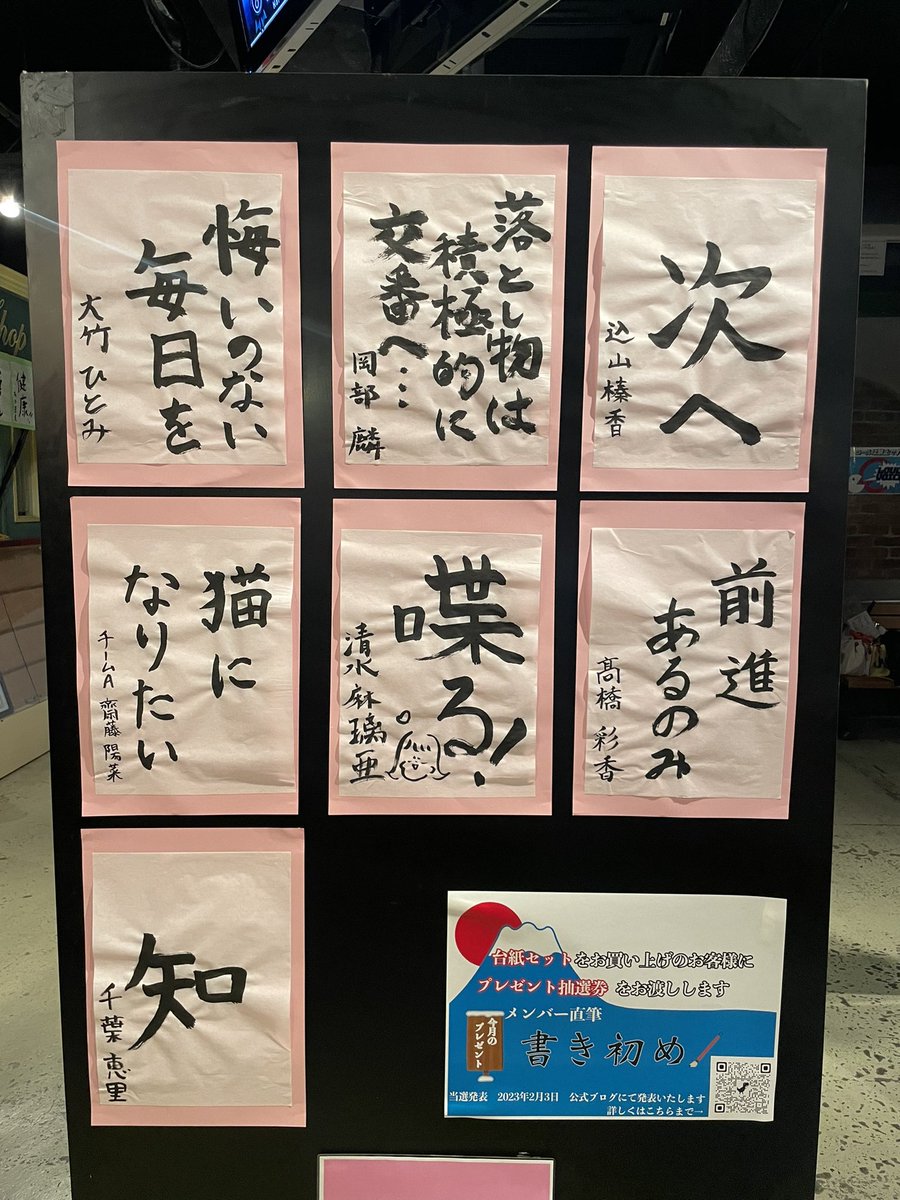 悔いのない
毎日を
大竹 ひとみ
落とし物は
積極的に
交番へ…
岡部 麟
次へ
込山榛香
猫に
なりたい
チームA 齋藤陽菜
喋る!
清水麻璃亜
前進
あるのみ
髙橋彩香
知
千葉恵里
台紙セットをお買い上げのお客様に
プレゼント抽選券 をお渡しします
メンバー直筆
今月の
プレゼント
書き初め
当選発表 2023年2月3日 公式ブログにて発表いたします
詳しくはこちらまで→
hop
健康